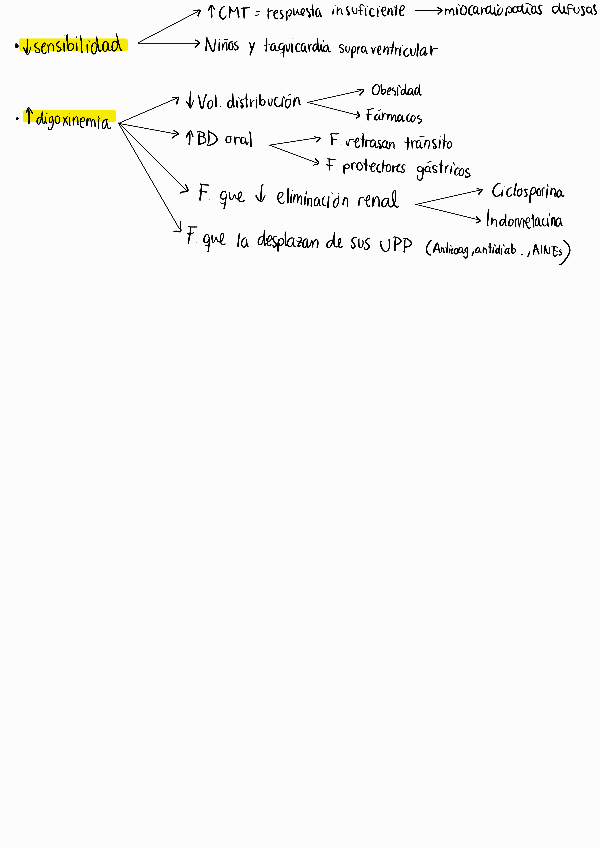 ↑ CMT = respuesta insuficiente → miocardiopatías difusas
• ↓ sensibilidad
Niños y taquicardia supraventricular
↓ Vol. distribución
Obesidad
Fármacos
• ↑ digoxinemia
↑ BD oral
F. retrasan tránsito
F protectores gástricos
F. que ↓ eliminación renal
Ciclosporina
Indometacina
F. que la desplazan de sus UPP (Anticoag, antidiab., AINEs)